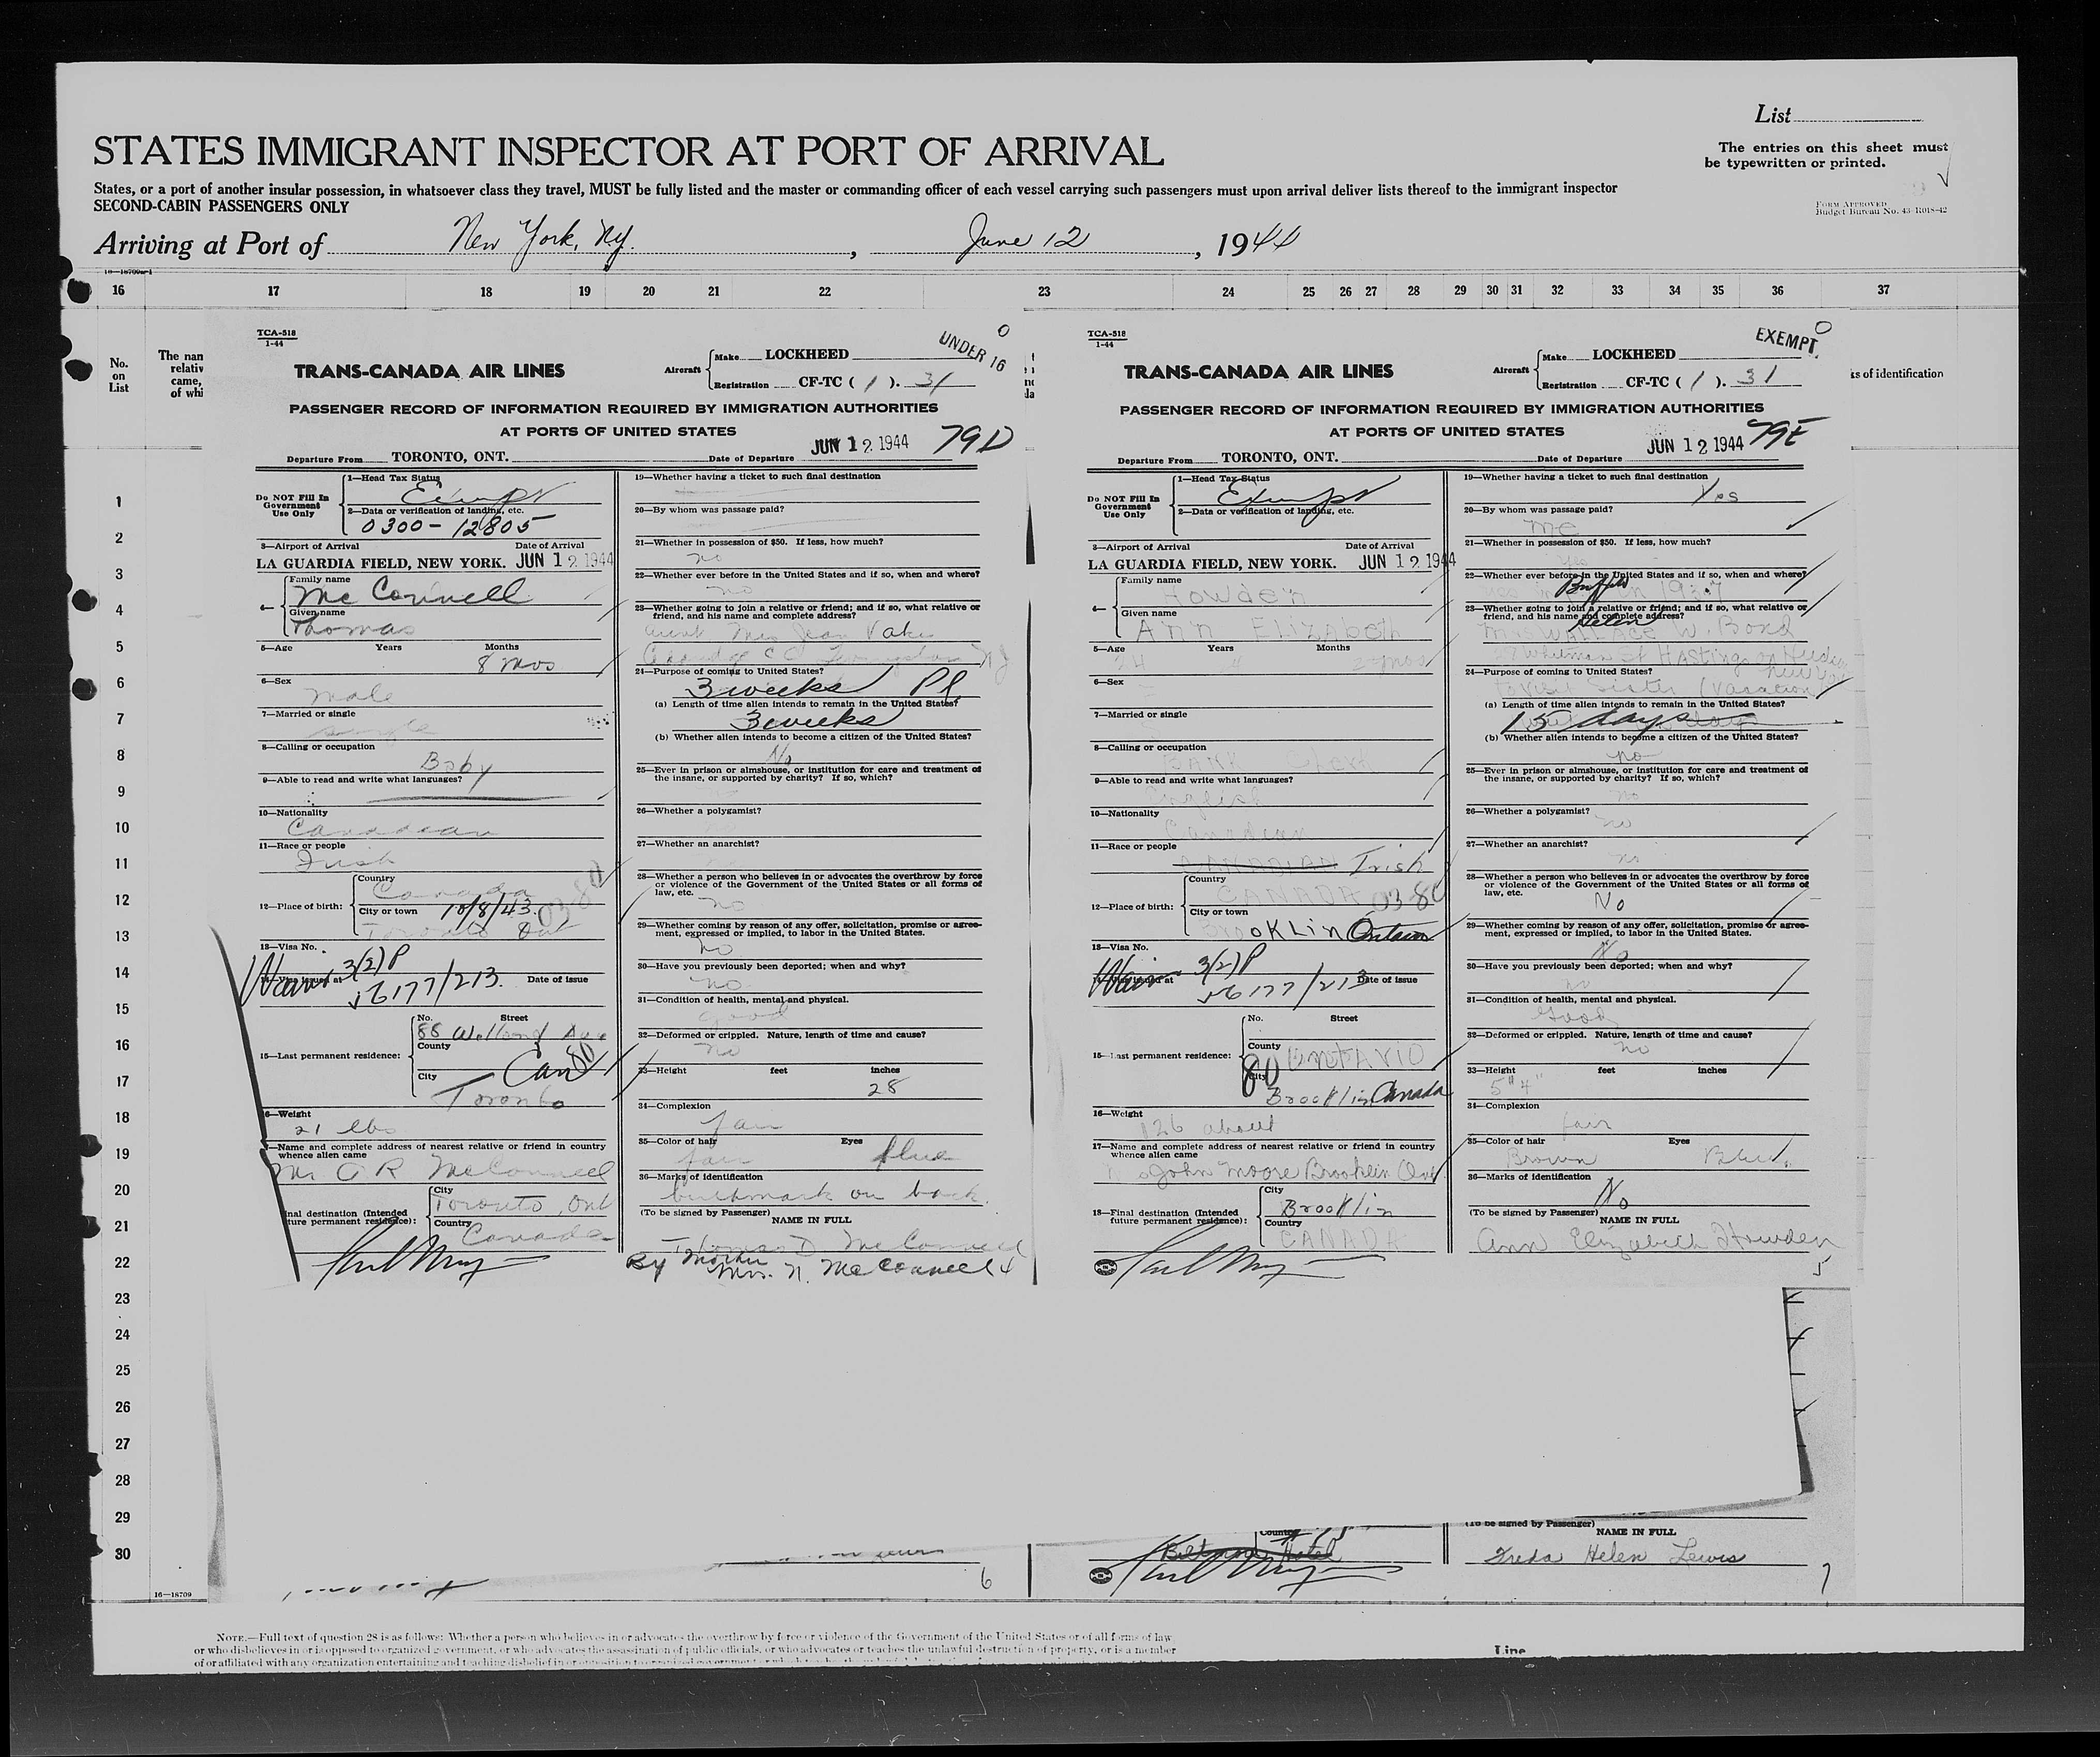 List
STATES IMMIGRANT INSPECTOR AT PORT OF ARRIVAL
The entries on this sheet must
be typewritten or printed.
States, or a port of another insular possession, in whatsoever class they travel, MUST be fully listed and the master or commanding officer of each vessel carrying such passengers must upon arrival deliver lists thereof to the immigrant inspector
SECOND-CABIN PASSENGERS ONLY
FORM APPROVED
Budget Bureau No. 43-R018-42
Arriving at Port of New York, N.Y., June 12, 1944
16 17 18 19 20 21 22 23 24 25 26 27 28 29 30 31 32 33 34 35 36 37
No.
on
List
The nan
relativ
came,
of whi
ks of identification
1
2
3
4
5
6
7
8
9
10
11
12
13
14
15
16
17
18
19
20
21
22
23
24
25
26
27
28
29
30
16—18709
TCA-518
1-44
UNDER 16
0
TRANS-CANADA AIR LINES
Aircraft
Make LOCKHEED
Registration CF-TC ( 1 ). 31
PASSENGER RECORD OF INFORMATION REQUIRED BY IMMIGRATION AUTHORITIES
AT PORTS OF UNITED STATES
JUN 12 1944 79D
Departure From TORONTO, ONT. Date of Departure
Do NOT Fill In
Government
Use Only
1—Head Tax Status
Exempt
2—Data or verification of landing, etc.
0300-12805
3—Airport of Arrival Date of Arrival
LA GUARDIA FIELD, NEW YORK. JUN 12 1944
4—
Family name
McConnell
Given name
Thomas
5—Age Years Months
8 mos
6—Sex
Male
7—Married or single
single
8—Calling or occupation
Baby
9—Able to read and write what languages?
10—Nationality
Canadian
11—Race or people
Irish
12—Place of birth:
Country
Canada
City or town 10/8/43 03-80
Toronto Ont
13—Visa No.
3(2)P
Date of issue
56177/213.
15—Last permanent residence:
No. Street
88 Ave
County
Can 80
City
Toronto
16—Weight
21 lbs
17—Name and complete address of nearest relative or friend in country
whence alien came
McConnell
inal destination (Intended
ture permanent residence):
City
Toronto, Ont
Country
Canada
19—Whether having a ticket to such final destination
20—By whom was passage paid?
21—Whether in possession of $50. If less, how much?
no
22—Whether ever before in the United States and if so, when and where?
no
23—Whether going to join a relative or friend; and if so, what relative or
friend, and his name and complete address?
aunt Mrs Jean
24—Purpose of coming to United States?
3 weeks Pl.
(a) Length of time alien intends to remain in the United States?
3 weeks
(b) Whether alien intends to become a citizen of the United States?
No
25—Ever in prison or almshouse, or institution for care and treatment of
the insane, or supported by charity? If so, which?
26—Whether a polygamist?
27—Whether an anarchist?
28—Whether a person who believes in or advocates the overthrow by force
or violence of the Government of the United States or all forms of
law, etc.
no
29—Whether coming by reason of any offer, solicitation, promise or agree-
ment, expressed or implied, to labor in the United States.
no
30—Have you previously been deported; when and why?
no
31—Condition of health, mental and physical.
good
32—Deformed or crippled. Nature, length of time and cause?
no
33—Height feet inches
28
34—Complexion
fair
35—Color of hair Eyes
fair blue
36—Marks of identification
birthmark on back.
(To be signed by Passenger)
NAME IN FULL
Thomas D McConnell
By Mother
Mrs. N. McConnell 4
TCA-518
1-44
EXEMPT.
0
TRANS-CANADA AIR LINES
Aircraft
Make LOCKHEED
Registration CF-TC ( 1 ). 31
PASSENGER RECORD OF INFORMATION REQUIRED BY IMMIGRATION AUTHORITIES
AT PORTS OF UNITED STATES
JUN 12 1944 79E
Departure From TORONTO, ONT. Date of Departure
Do NOT Fill In
Government
Use Only
1—Head Tax Status
Exempt
2—Data or verification of landing, etc.
3—Airport of Arrival Date of Arrival
LA GUARDIA FIELD, NEW YORK. JUN 12 1944
4—
Family name
Howden
Given name
Ann Elizabeth
5—Age Years Months
24
6—Sex
7—Married or single
8—Calling or occupation
BANK Clerk
9—Able to read and write what languages?
English
10—Nationality
Canadian
11—Race or people
CANADIAN Irish
12—Place of birth:
Country
CANADA 03-80
City or town
BrooKLin Ontario
13—Visa No.
3(2)P
Date of issue
56177/213
15—Last permanent residence:
No. Street
County
OntARIO
80
City
Brooklin Canada
16—Weight
126 about
17—Name and complete address of nearest relative or friend in country
whence alien came
John Moore Brooklin Ont
18—Final destination (Intended
future permanent residence):
City
Brooklin
Country
CANADA
19—Whether having a ticket to such final destination
Yes
20—By whom was passage paid?
Me
21—Whether in possession of $50. If less, how much?
Yes
22—Whether ever before in the United States and if so, when and where?
Buffalo
1937
23—Whether going to join a relative or friend; and if so, what relative or
friend, and his name and complete address?
Helen
Mrs WALLACE W. Bond
Whitman St Hastings on Hudson
New York
24—Purpose of coming to United States?
to visit sister (vacation)
(a) Length of time alien intends to remain in the United States?
15 days
(b) Whether alien intends to become a citizen of the United States?
no
25—Ever in prison or almshouse, or institution for care and treatment of
the insane, or supported by charity? If so, which?
no
26—Whether a polygamist?
no
27—Whether an anarchist?
no
28—Whether a person who believes in or advocates the overthrow by force
or violence of the Government of the United States or all forms of
law, etc.
No
29—Whether coming by reason of any offer, solicitation, promise or agree-
ment, expressed or implied, to labor in the United States.
No
30—Have you previously been deported; when and why?
no
31—Condition of health, mental and physical.
Good
32—Deformed or crippled. Nature, length of time and cause?
no
33—Height feet inches
5" 4"
34—Complexion
fair
35—Color of hair Eyes
Brown Blue.
36—Marks of identification
No
(To be signed by Passenger)
NAME IN FULL
Ann Elizabeth Howden
5
6
Country
Biltmore Hotel
(To be signed by Passenger)
NAME IN FULL
Freda Helen Lewis
7
NOTE.—Full text of question 28 is as follows: Whether a person who believes in or advocates the overthrow by force or violence of the Government of the United States or of all forms of law,
or who disbelieves in or is opposed to organized government, or who advocates the assassination of public officials, or who advocates or teaches the unlawful destruction of property, or is a member
of or affiliated with any organization entertaining and teaching disbelief in or opposition to organized government
Line